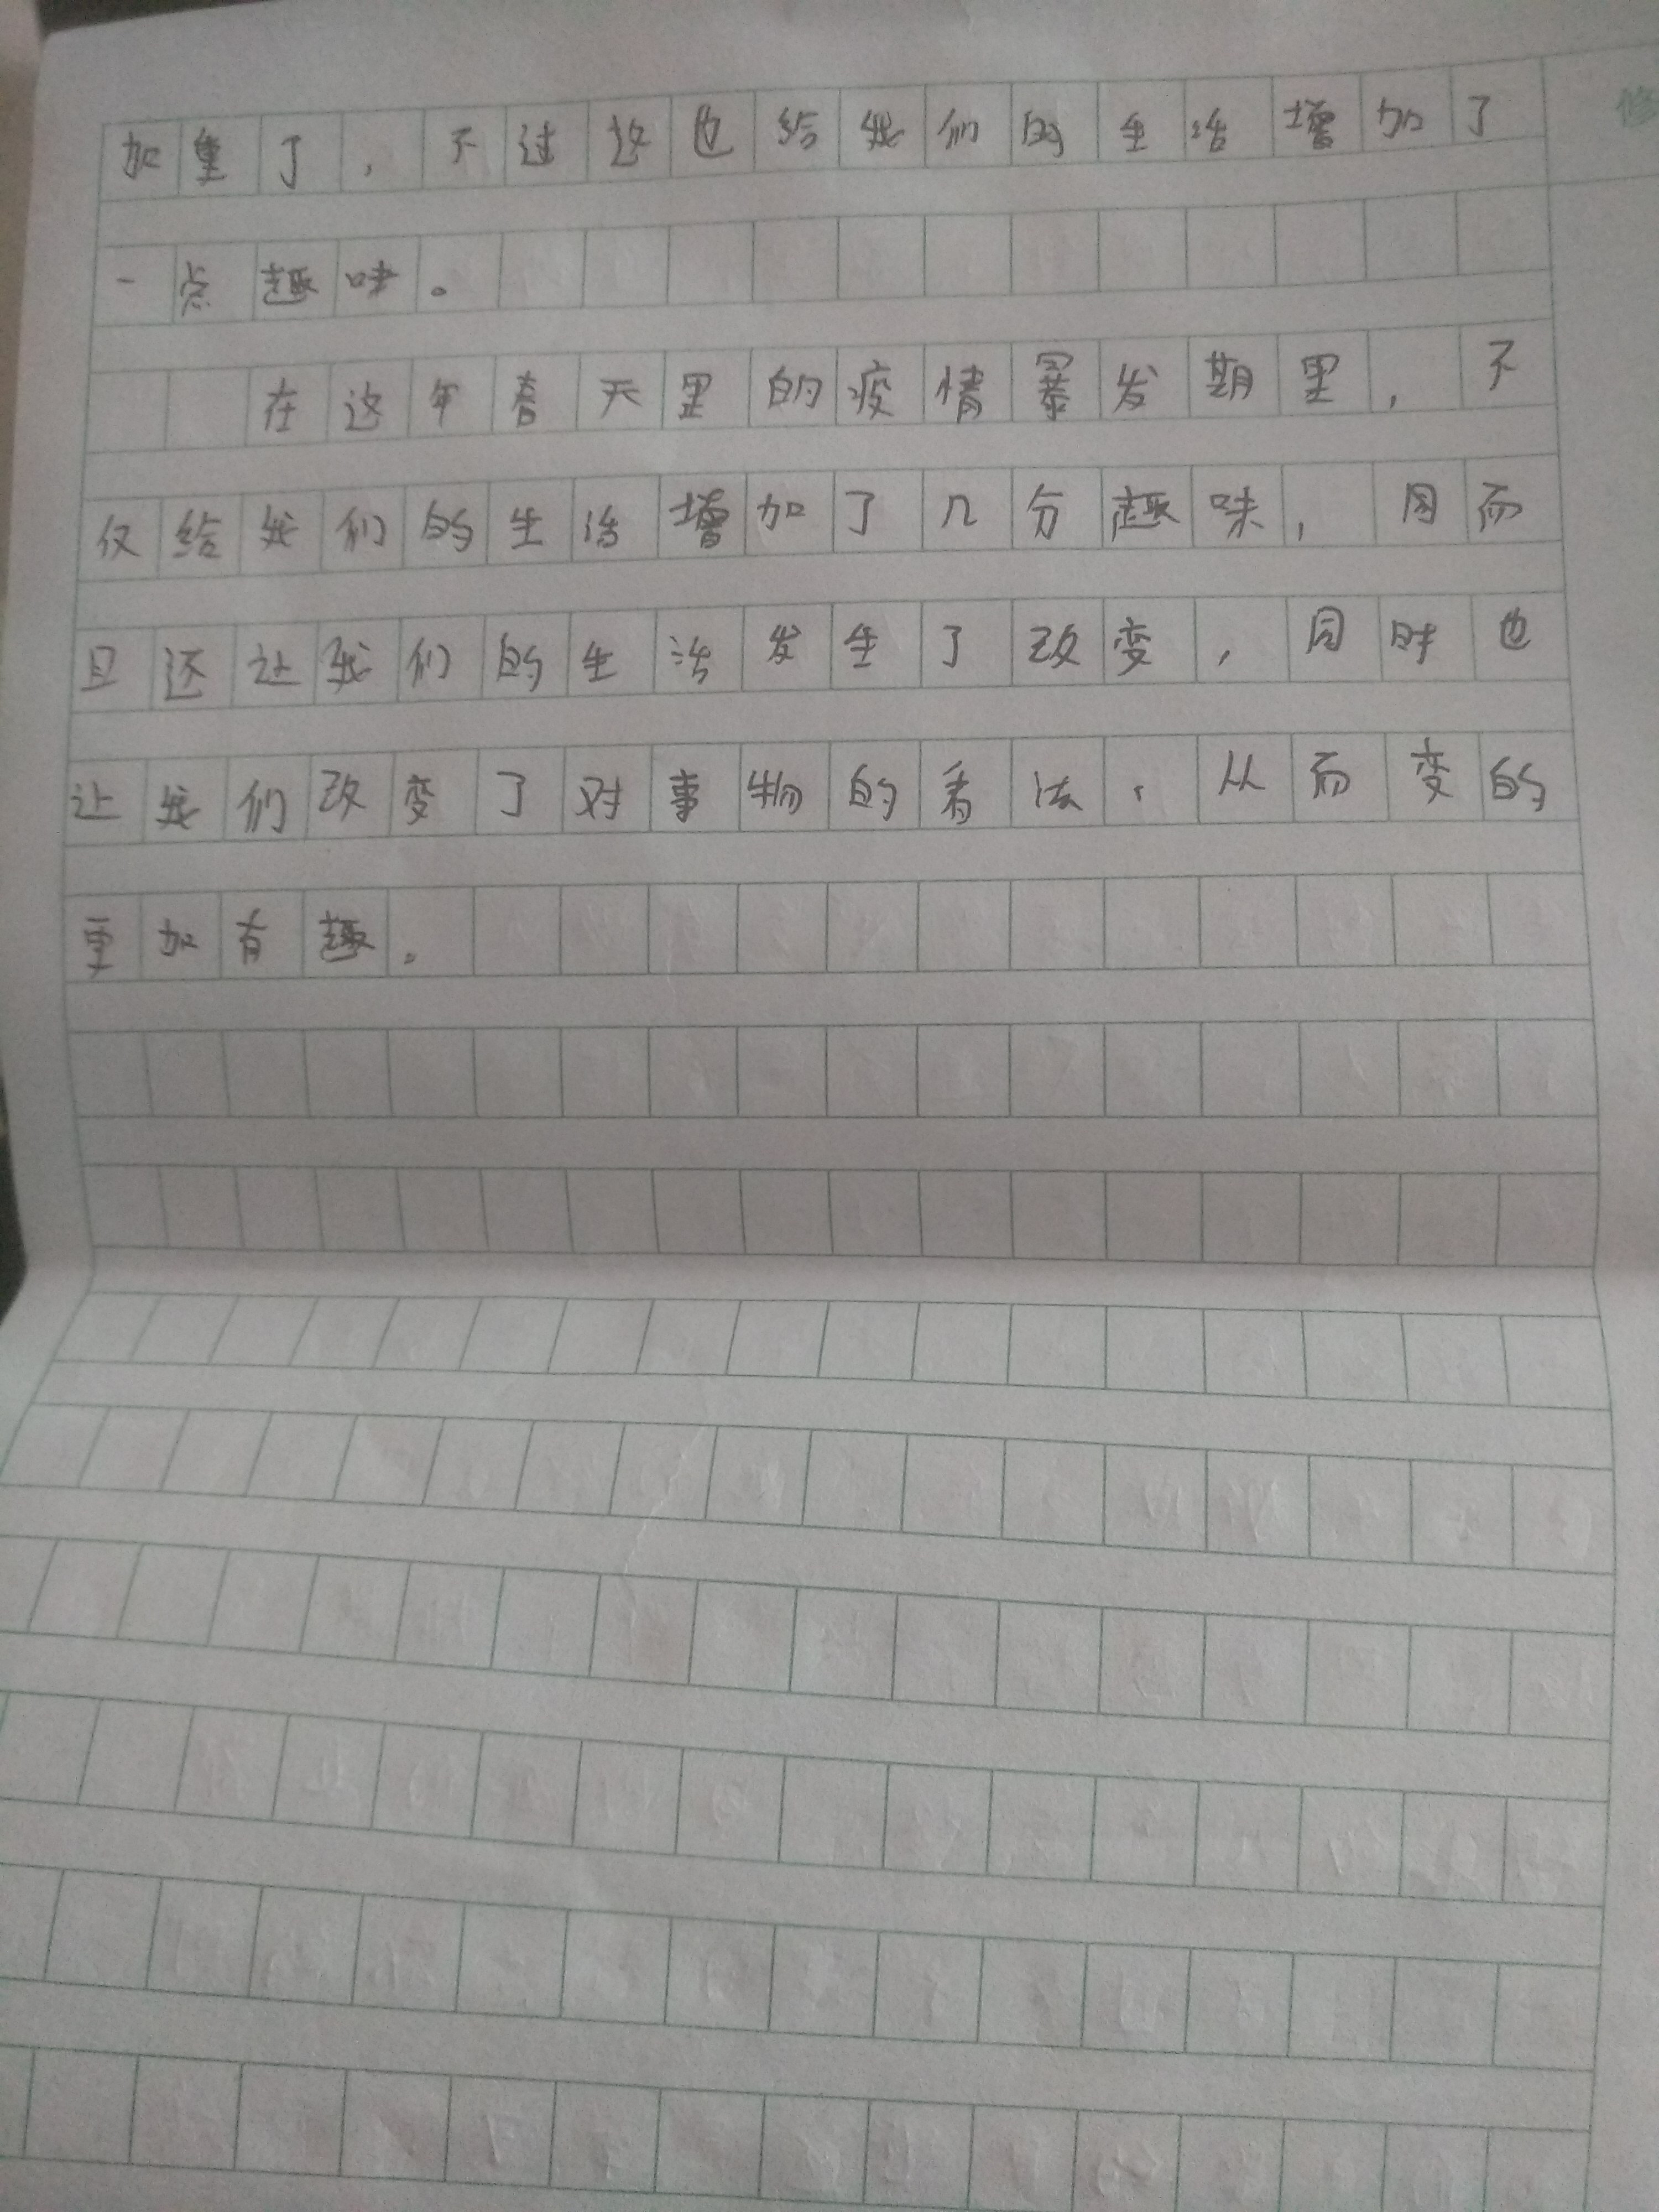 加重了，不过这也给我们的生活增加了
一点趣味。
在这年春天里的疫情暴发期里，不
仅给我们的生活增加了几分趣味，因而
且还让我们的生活发生了改变，同时也
让我们改变了对事物的看法，从而变的
更加有趣。
修